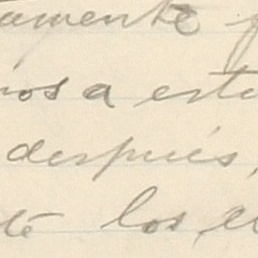 amente
nos a est
después,
te los